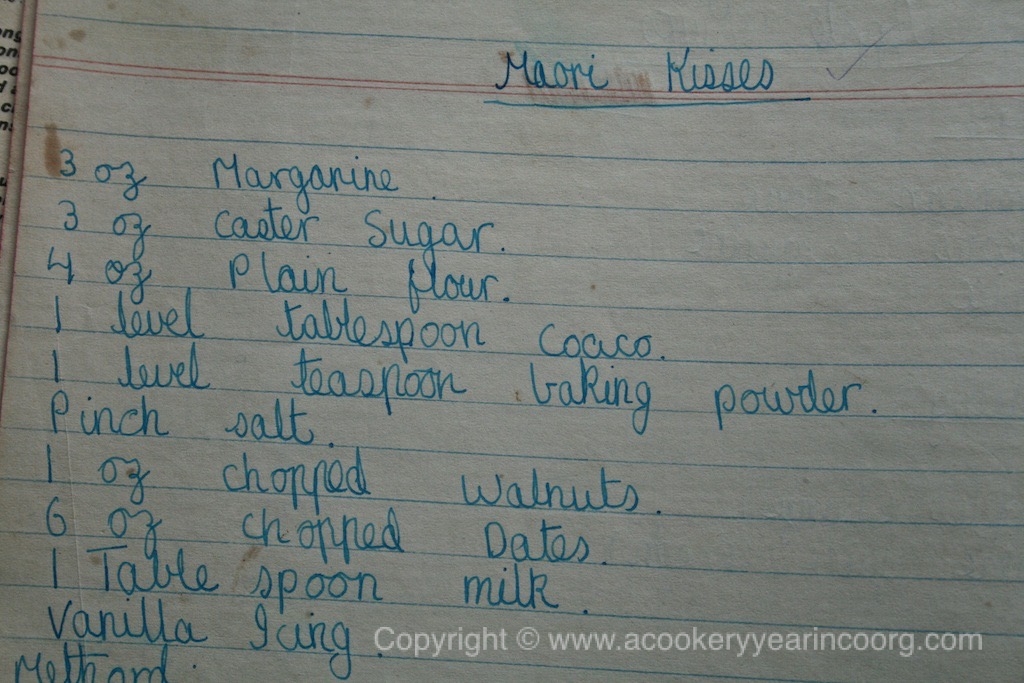 Maori Kisses
3 oz Margarine.
3 oz Caster Sugar.
4 oz Plain flour.
1 level tablespoon Coaco.
1 level teaspoon baking powder.
Pinch salt.
1 oz chopped Walnuts.
6 oz chopped Dates.
1 Table spoon milk.
Vanilla Icing.
Copyright © www.acookeryyearincoorg.com
Methord.